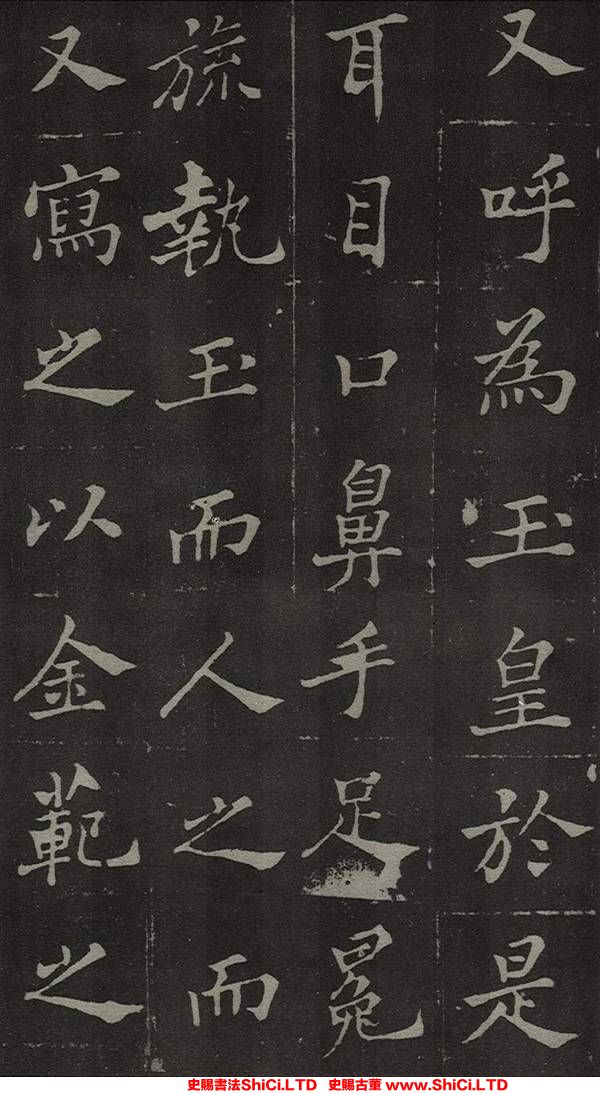 又呼為玉皇於是
耳目口鼻手足冕
旒執玉而人之而
又寫之以金範之
史賜書法ShiCi.LTD 史賜古董 www.ShiCi.LTD